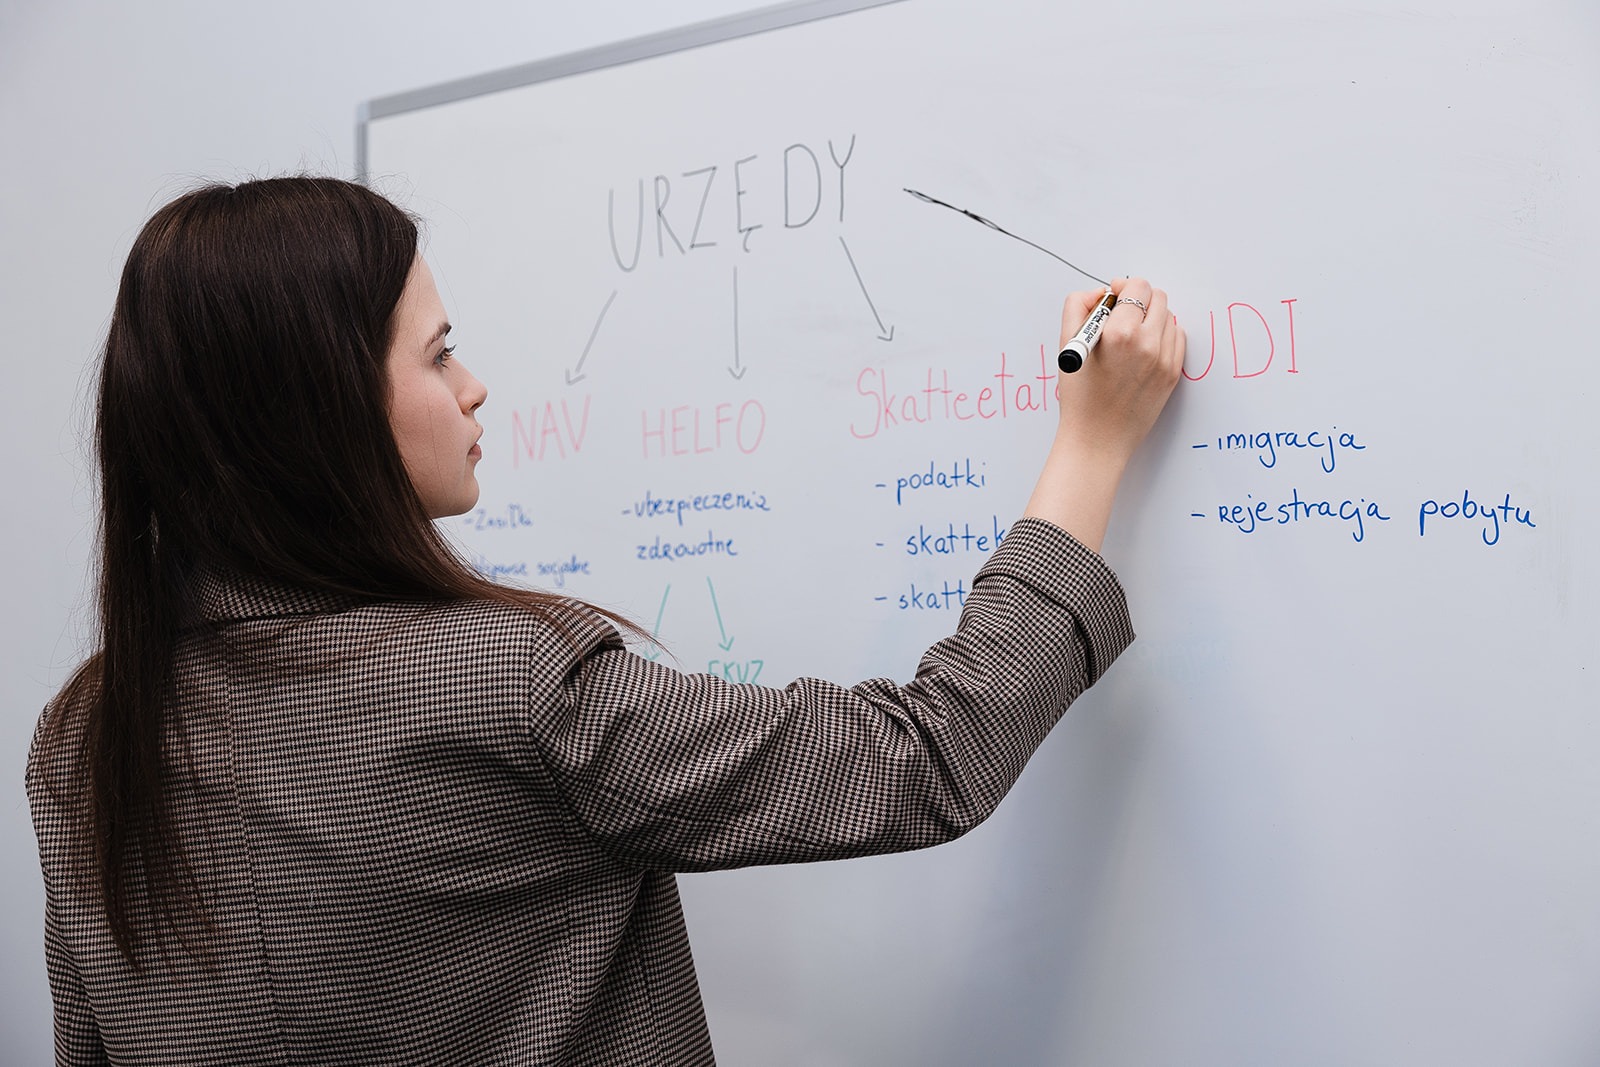 URZĘDY
NAV
- Zasiłki
socjalne
HELFO
- ubezpieczenia
zdrowotne
EKUZ
Skatteetat
- podatki
- skattek
- skatt
UDI
- imigracja
- rejestracja pobytu